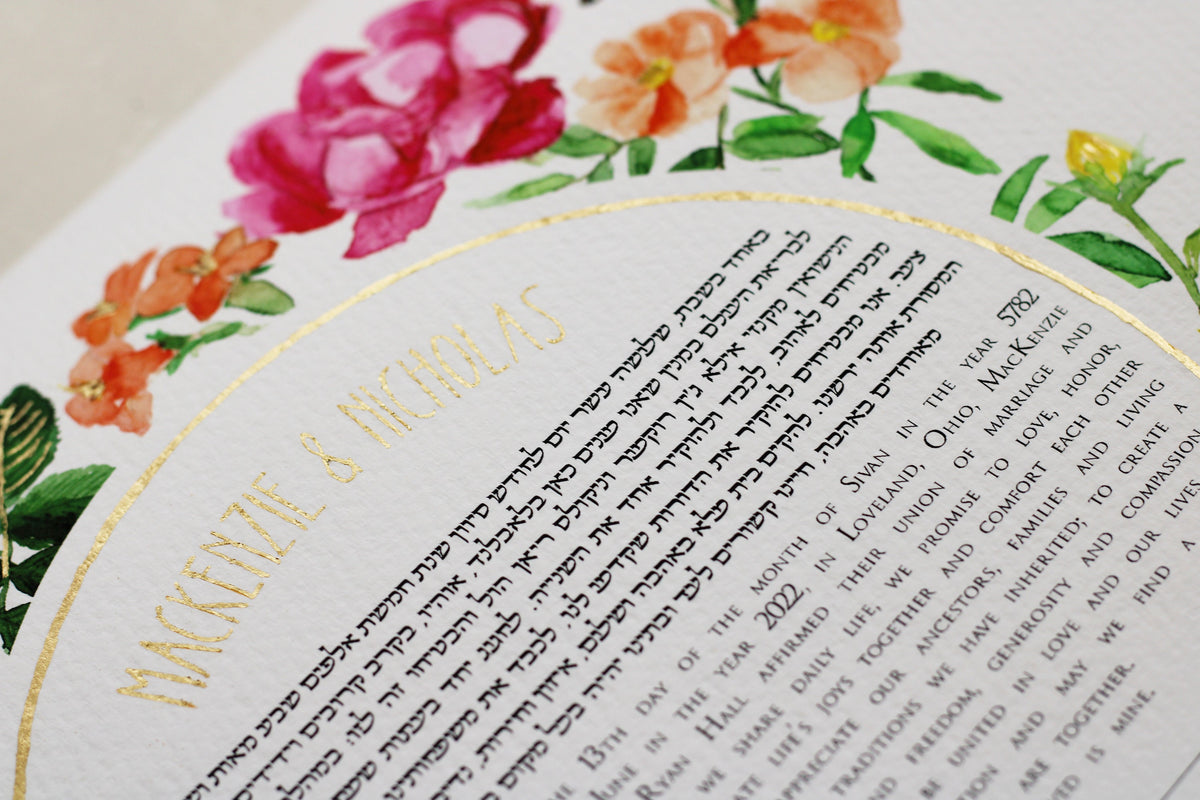 MACKENZIE & NICHOLAS
באחד בשבת, שלושה עשר יום לחודש סיוון שנת חמשת אלפים שבע מאות
לבריאת העולם במנין שאנו מונים כאן בלאבלנד, אוהיו, בקרב קרובים וידידים
הנישואין מקנזי אילא ג'ין רוקער וניקולס ריאן הול והבטיחו זה לזו: במהלך
מבטיחים לאהוב, לכבד ולהוקיר אחד את השנייה, לחגוג יחד בעתות ששון
צער. אנו מבטיחים להוקיר את הדורות שקדמו לנו, לכבד את משפחותינו
המסורת אותה ירשנו. להקים בית מלא באהבה ושלום, איזון וחירות,
מאוחדים באהבה, חיינו קשורים לעד וביתינו יהיה בכל מקום
13TH DAY OF THE MONTH OF SIVAN IN THE YEAR 5782
JUNE IN THE YEAR 2022, IN LOVELAND, OHIO, MACKENZIE
RYAN HALL AFFIRMED THEIR UNION OF MARRIAGE AND
WE SHARE DAILY LIFE, WE PROMISE TO LOVE, HONOR,
LIFE'S JOYS TOGETHER AND COMFORT EACH OTHER
APPRECIATE OUR ANCESTORS, FAMILIES AND LIVING
TRADITIONS WE HAVE INHERITED; TO CREATE A
AND FREEDOM, GENEROSITY AND COMPASSION
BE UNITED IN LOVE AND OUR LIVES
AND MAY WE FIND A
ARE TOGETHER.
IS MINE.